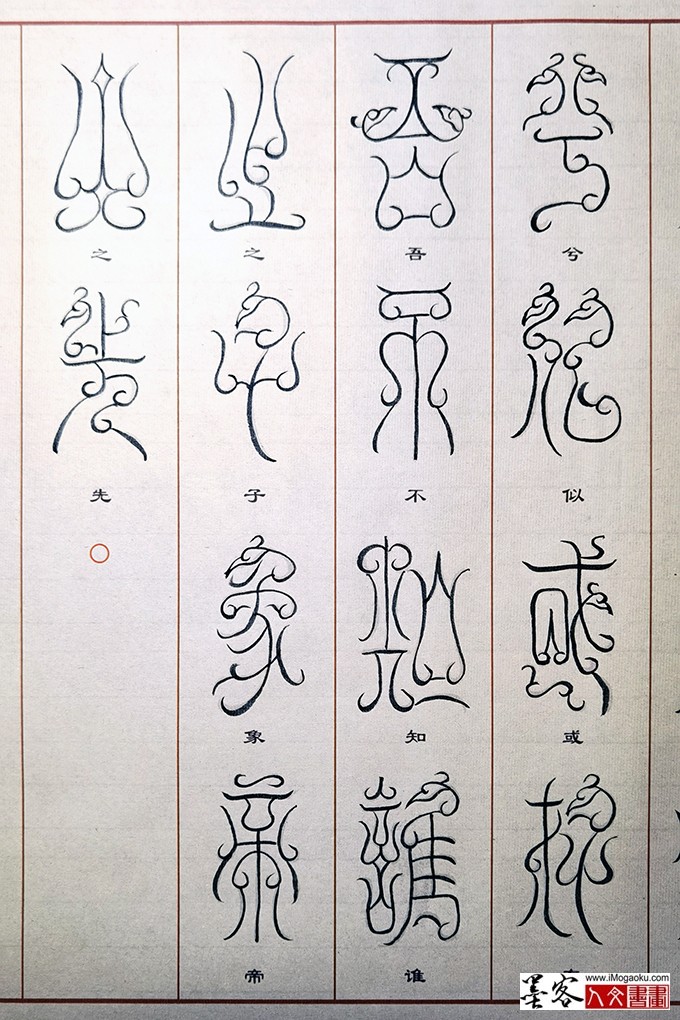 兮似或存
吾不知谁
之子象帝
之先○
墨客
www.iMogaoku.com
人文書畫